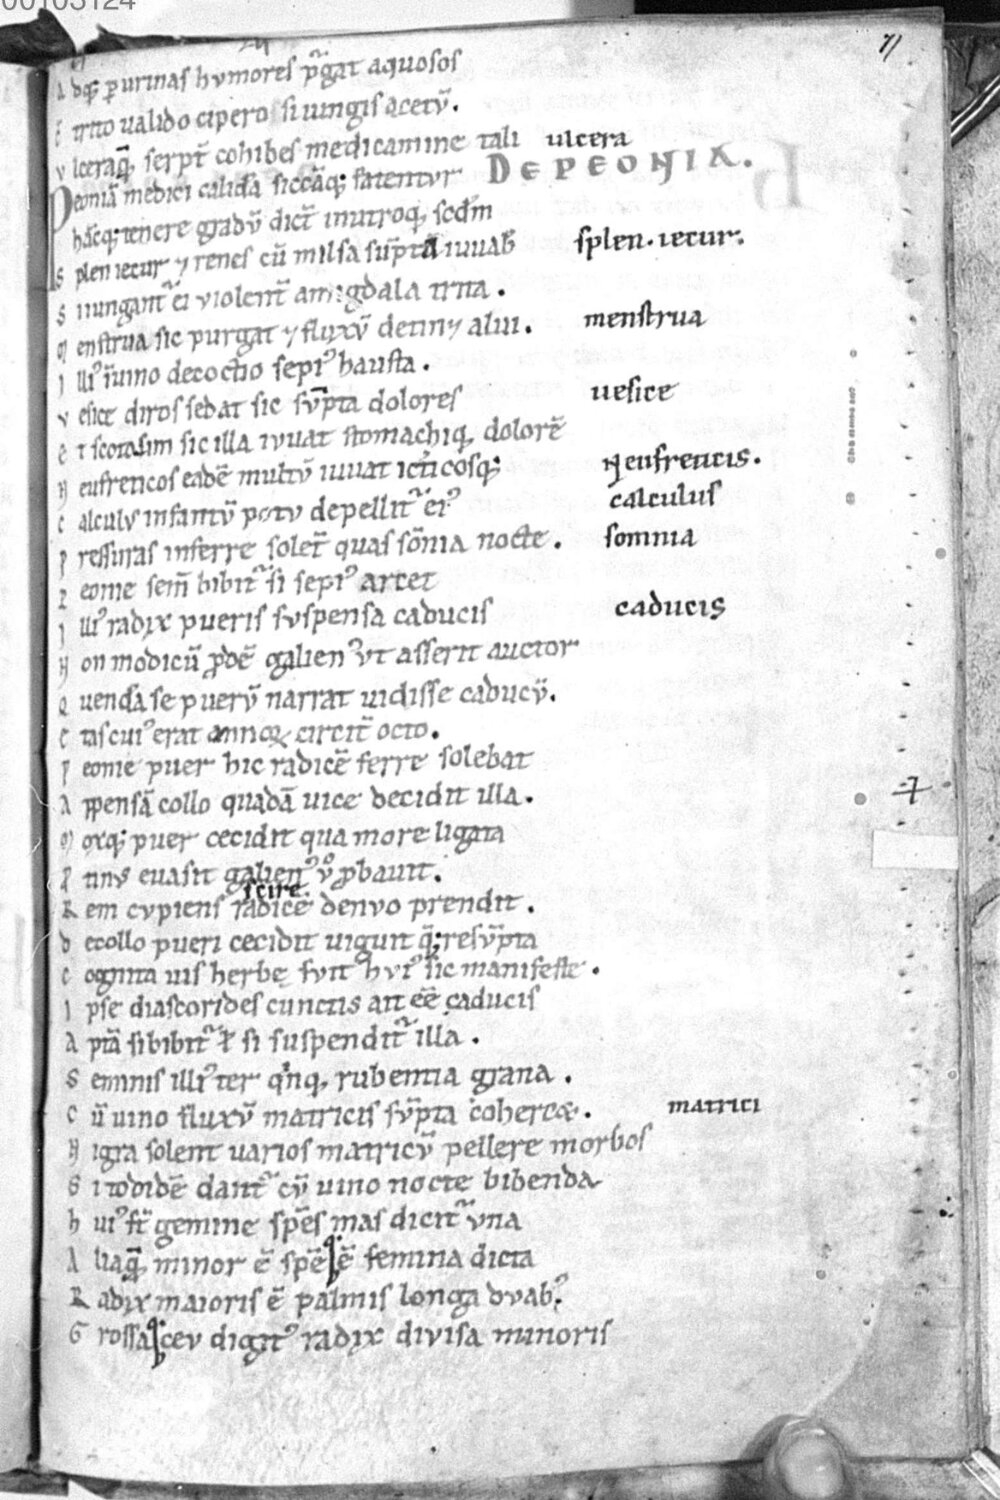 00103124
71
A dq; p urinas hvmores p̄gat aquosos
E trito ualido cipero si iungis acetū.
v lceraq; serpt̄ cohibes medicamine tali ulcera
DE PEONIA.
Peoniā medici calidā siccāq; fatentvr
hācq; tenere gradū dict̄ inutroq; scdm̄
S plen iecur ⁊ renes cū mulsa sūpta iuuab̄ splen. iecur.
S i iungant̄ ei violent̄ amigdala trita.
M enstrua sic purgat ⁊ flvxv̄ detin⁊ alui. menstrua
I lli᾽ īuino decoctio sepi᾽ hausta.
v esice diros sedat sic sv̄pta dolores uesice
E t scotosim sic illa ivuat stomachiq; dolorē
N eufreticos eadē multv̄ iuuat ictͥicosq; Neufreticis.
C alculv infantv̄ potv depellit̄ ei᾽ calculus
P ressuras inferre solet̄ quas sōnia nocte. somnia
P eonie sem̄ bibit̄ si sepi᾽ arcet
I lli᾽ radix pueris svspensa caducis caducis
N on modicū p̄dē galien᾽ vt asserit auctor
Q uendā se puerv̄ narrat uidisse cadvcv̄.
E tas cui᾽ erat annoꝝ circit̄ octo.
P eonie puer hic radicē ferre solebat
A ppensā collo quadā uice decidit illa.
M oxq; puer cecidit qua more ligata
P tinvs euasit galien᾽ v̊ p̄bauit.
scire.
R em cvpiens radicē denvo prendit.
D ecollo pueri cecidit uiguit q; resv̄pta
C ognita uis herbe fvit hvi᾽ sic manifeste.
I pse diascorides cunctis ait eē caducis
A ptā si bibit̄ ł si suspendit̄ illa.
S eminis illi᾽ ter qͥnq; rubentia grana.
C ū uino flvxv̄ matricis sv̄pta cohercet. matrici
N igra solent uarios matricv̄ pellere morbos
S i todidē dant̄ cv̄ uino nocte bibenda
h ui᾽ ft̄ gemine spēs mas dicit̄ vna
A liaq; minor ē spēs ē femina dicta
R adix maioris ē palmis longa dvab᾽.
G rossa cev digit᾽ radix divisa minoris